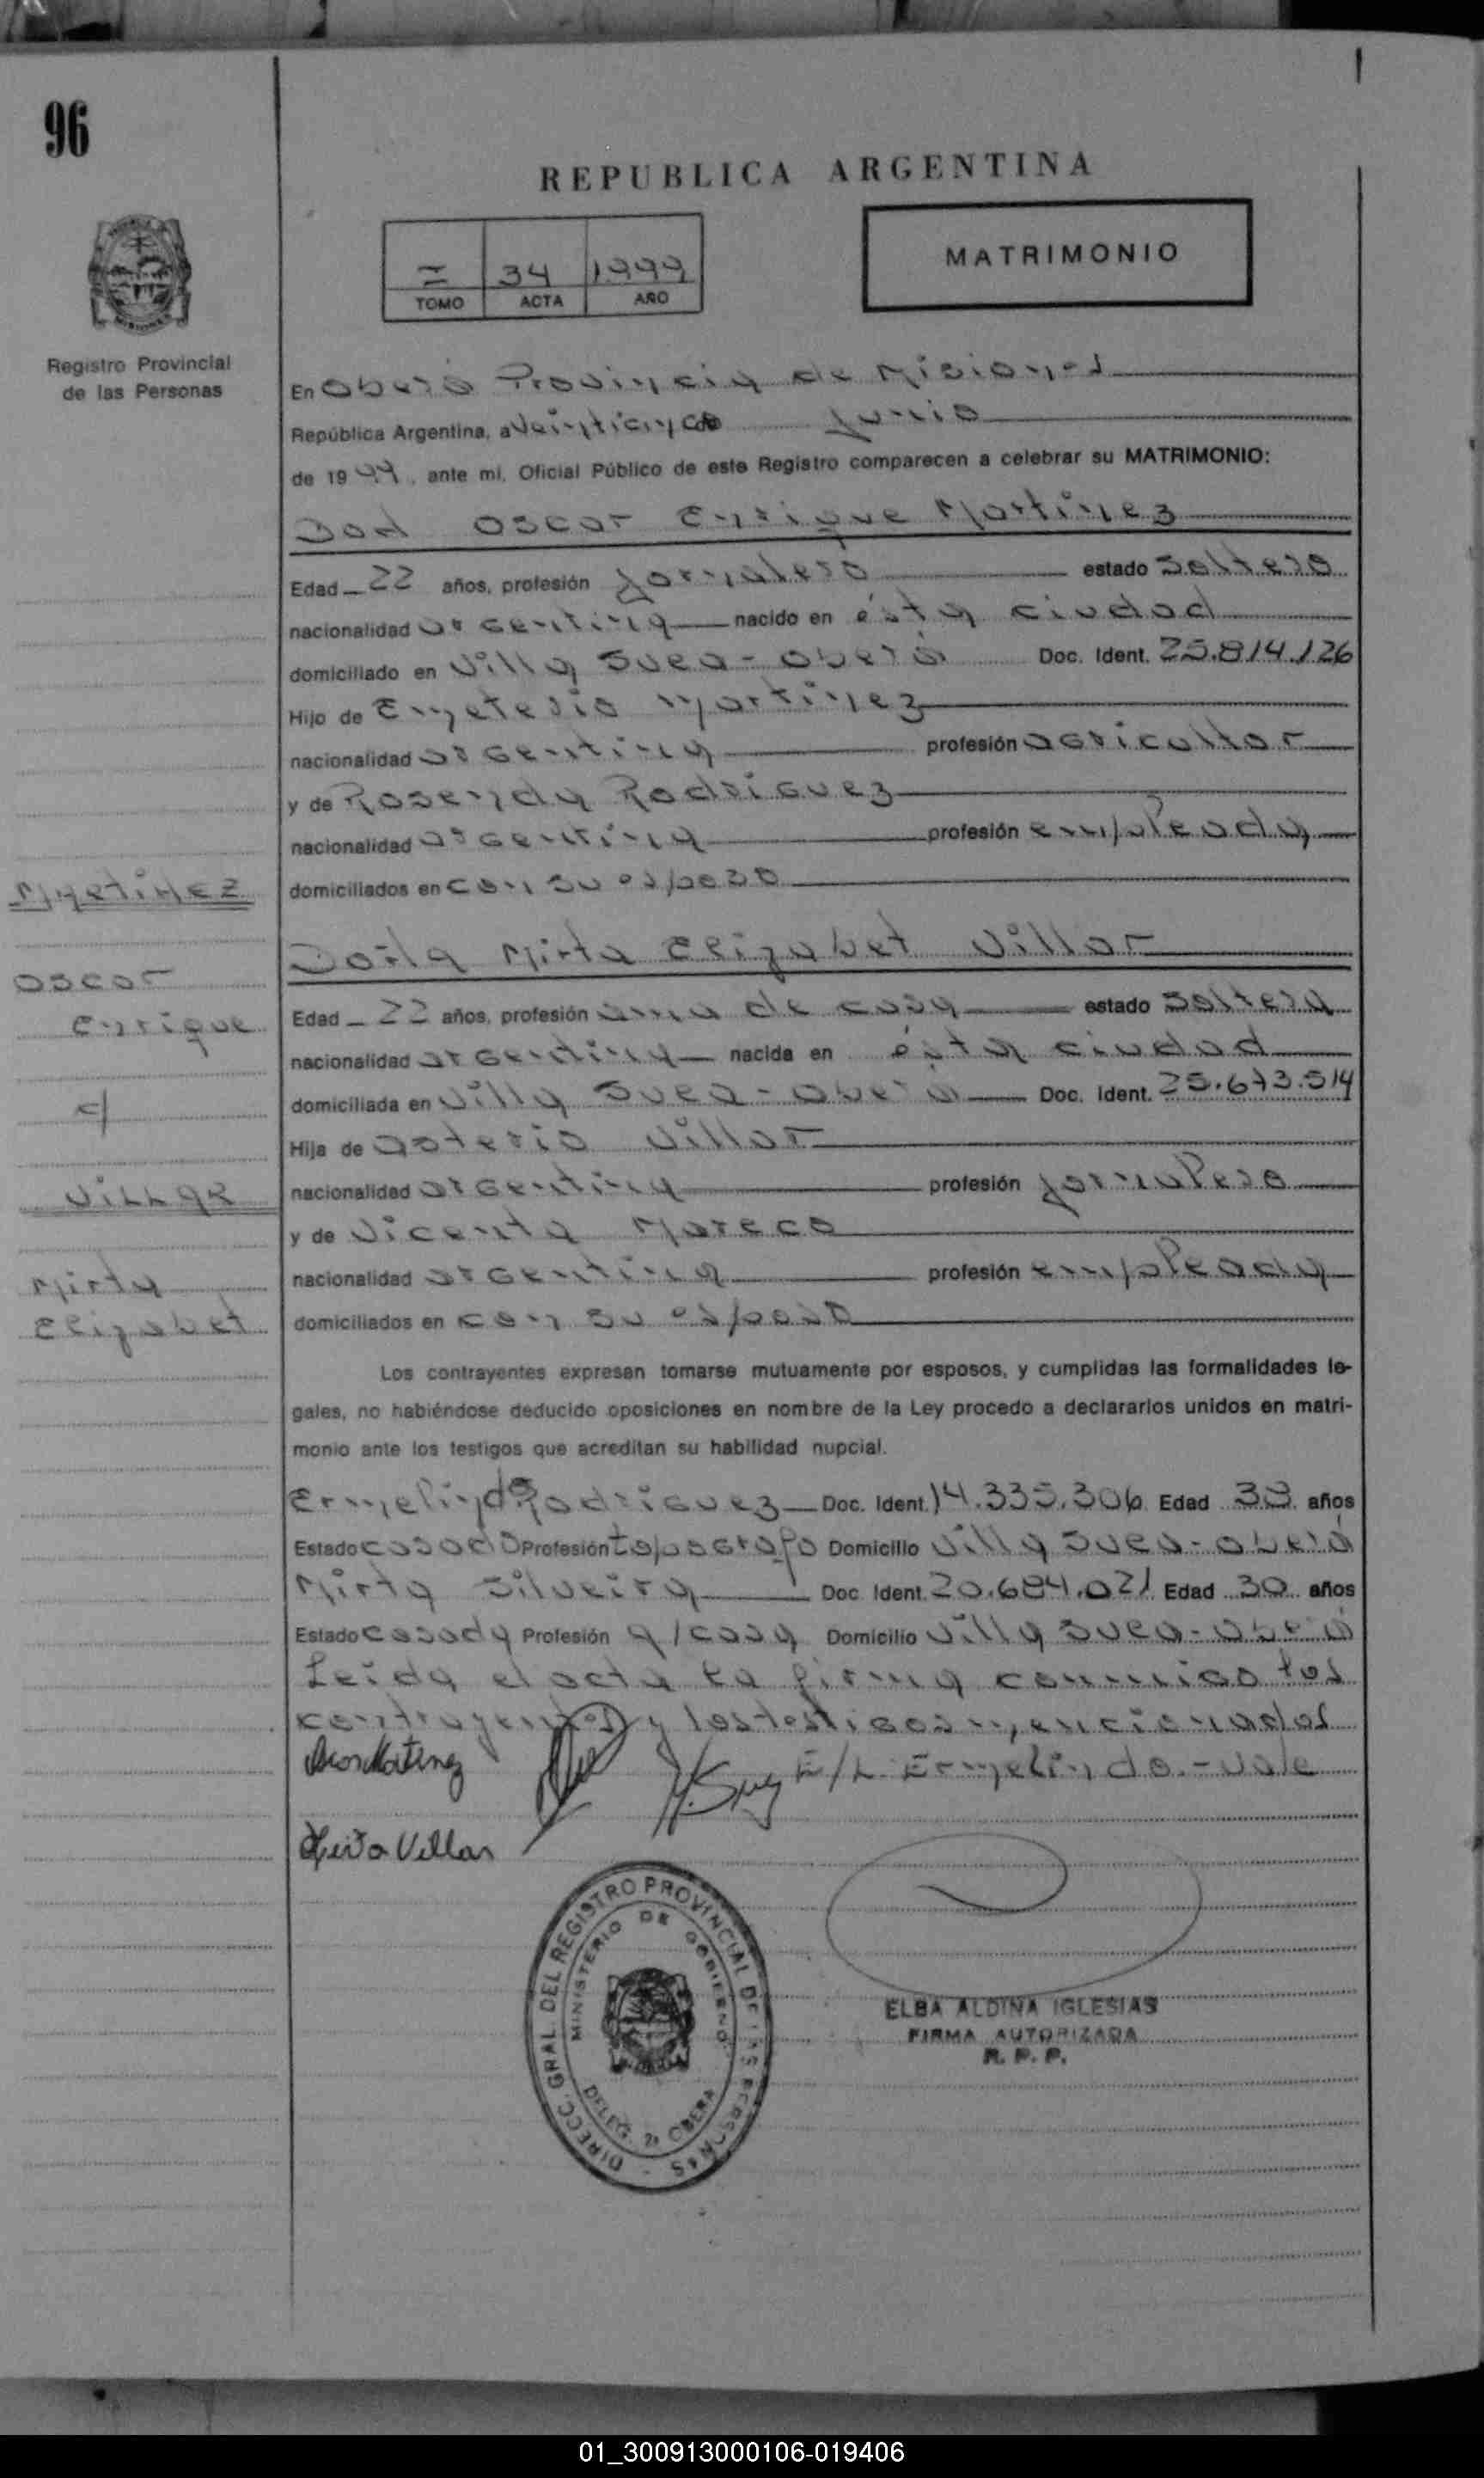 96
REPUBLICA ARGENTINA
MATRIMONIO
34 1999
TOMO ACTA AÑO
Registro Provincial
de las Personas
En Oberá Provincia de Misiones
República Argentina, a veinticinco de junio
de 1999, ante mi, Oficial Público de este Registro comparecen a celebrar su MATRIMONIO:
Don Oscar Enrique Martinez
Edad 22 años, profesión jornalero estado soltero
nacionalidad argentina nacido en ésta ciudad
domiciliado en Villa Svea - Oberá Doc. Ident. 25.814.126
Hijo de Emeterio Martinez
nacionalidad argentina profesión agricultor
y de Rosenda Rodriguez
nacionalidad argentina profesión empleada
domiciliados en con su esposo
MARTINEZ
Oscar
Enrique
c/
VILLAR
Mirta
Elizabet
Doña Mirta Elizabet Villar
Edad 22 años, profesión ama de casa estado soltera
nacionalidad argentina nacida en ésta ciudad
domiciliada en Villa Svea - Oberá Doc. Ident. 25.673.514
Hija de Asterio Villar
nacionalidad argentina profesión jornalero
y de Vicenta Mareco
nacionalidad argentina profesión empleada
domiciliados en con su esposo
Los contrayentes expresan tomarse mutuamente por esposos, y cumplidas las formalidades le-
gales, no habiéndose deducido oposiciones en nombre de la Ley procedo a declararlos unidos en matri-
monio ante los testigos que acreditan su habilidad nupcial.
Ermelindo Rodriguez Doc. Ident. 14.335.306 Edad 38 años
Estado casado Profesión topografo Domicilio Villa Svea - Oberá
Mirta Silveira Doc Ident. 20.684.021 Edad 30 años
Estado casada Profesión a/casa Domicilio Villa Svea - Oberá
Leida el acta la firma conmigo los
contrayentes y los testigos mencionados
E/L. Ermelindo.- Vale
Villar
DIRECC. GRAL. DEL REGISTRO PROVINCIAL DE LAS PERSONAS
MINISTERIO DE GOBIERNO
DELEG. 2ª OBERA
ELBA ALDINA IGLESIAS
FIRMA AUTORIZADA
R. P. P.
01_300913000106-019406